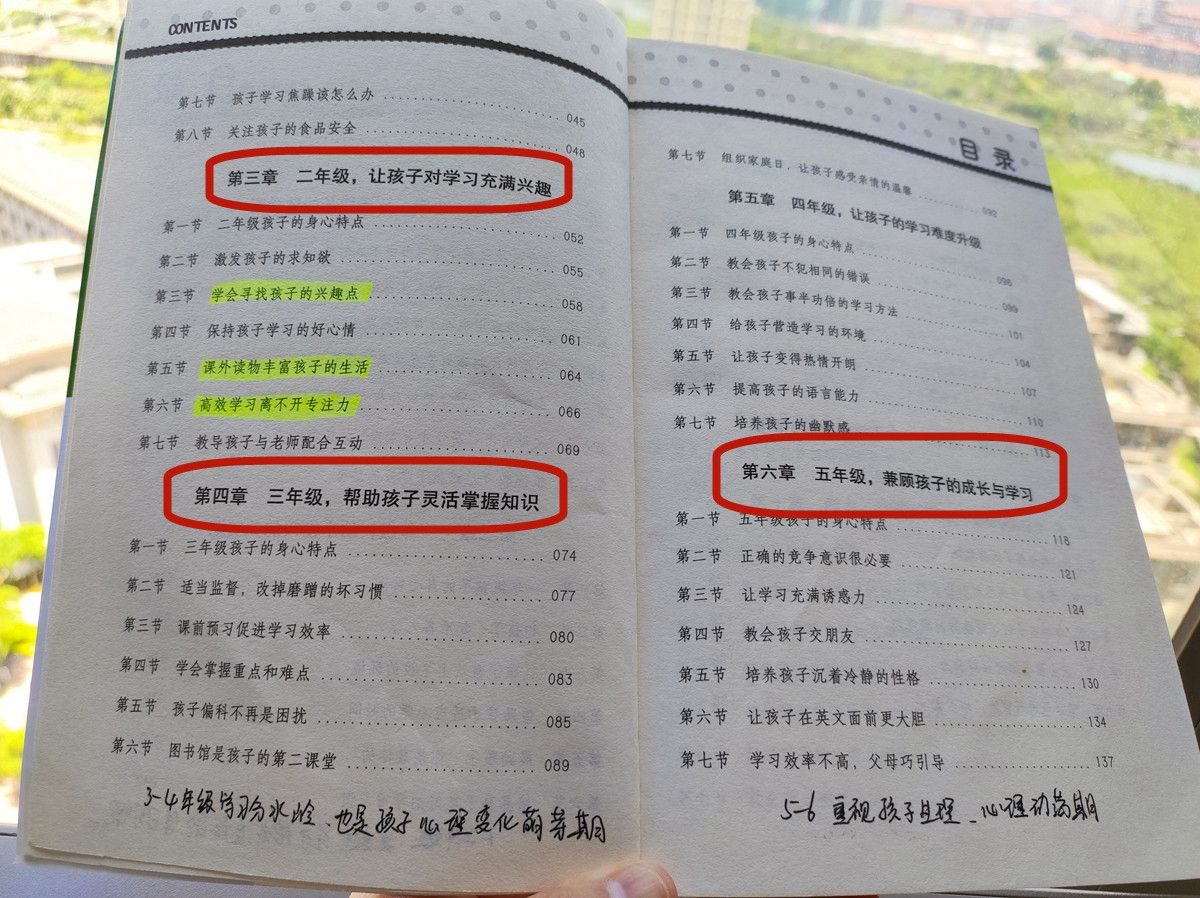 CONTENTS
第七节 孩子学习焦躁该怎么办 045
第八节 关注孩子的食品安全 048
第三章 二年级，让孩子对学习充满兴趣
第一节 二年级孩子的身心特点 052
第二节 激发孩子的求知欲 055
第三节 学会寻找孩子的兴趣点 058
第四节 保持孩子学习的好心情 061
第五节 课外读物丰富孩子的生活 064
第六节 高效学习离不开专注力 066
第七节 教导孩子与老师配合互动 069
第四章 三年级，帮助孩子灵活掌握知识
第一节 三年级孩子的身心特点 074
第二节 适当监督，改掉磨蹭的坏习惯 077
第三节 课前预习促进学习效率 080
第四节 学会掌握重点和难点 083
第五节 孩子偏科不再是困扰 085
第六节 图书馆是孩子的第二课堂 089
3-4年级学习分水岭、也是孩子心理变化萌芽期
目录
第七节 组织家庭日，让孩子感受亲情的温馨 092
第五章 四年级，让孩子的学习难度升级
第一节 四年级孩子的身心特点 096
第二节 教会孩子不犯相同的错误 099
第三节 教会孩子事半功倍的学习方法 101
第四节 给孩子营造学习的环境 104
第五节 让孩子变得热情开朗 107
第六节 提高孩子的语言能力 110
第七节 培养孩子的幽默感 113
第六章 五年级，兼顾孩子的成长与学习
第一节 五年级孩子的身心特点 118
第二节 正确的竞争意识很必要 121
第三节 让学习充满诱惑力 124
第四节 教会孩子交朋友 127
第五节 培养孩子沉着冷静的性格 130
第六节 让孩子在英文面前更大胆 134
第七节 学习效率不高，父母巧引导 137
5-6 重视孩子 理、心理动荡期